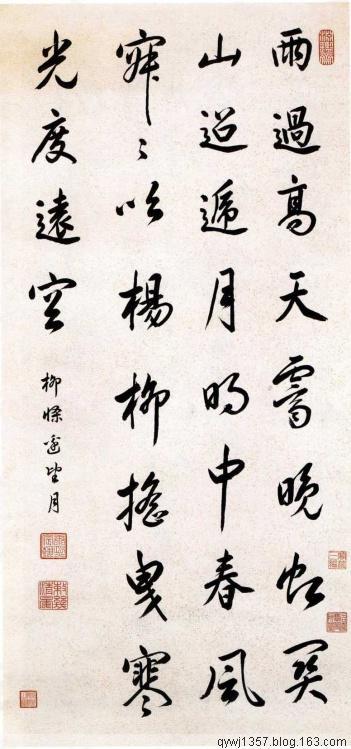 雨過高天霽晚虹關
山迢遞月明中春風
寂〻吹楊柳搖曳寒
光度遠空
柳條邊望月
qywj1357.blog.163.com